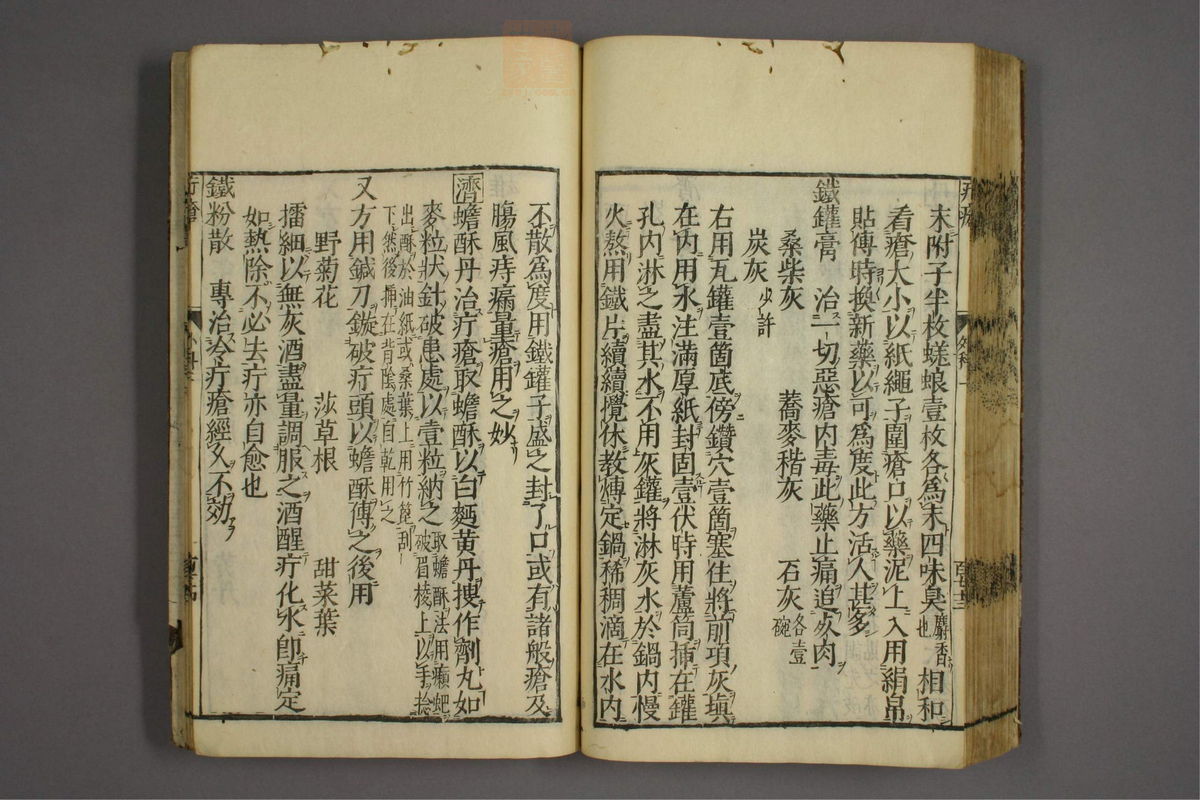 末附子半枚蜣蜋壹枚各爲末四味臭麝香也相和
看瘡大小以紙繩子圍瘡口以藥泥上入用絹帛
貼傅時換新藥以可爲度此方活人甚多
鐵鑵膏 治一切惡瘡內毒此藥止痛追死肉
桑柴灰 蕎麥稭灰 石灰各壹碗
炭灰少許
右用瓦鑵壹箇底傍鑽穴壹箇塞住將前項灰塡
在內用水注滿厚紙封固壹伏時用蘆筒揷在鑵
孔內淋之盡其水不用灰鑵將淋灰水於鍋內慢
火熬用鐵片續續攪休教煿定鍋稀稠滴在水內
不散爲度用鐵鑵子盛之封了口或有諸般瘡及
腸風痔瘺量瘡用之妙
濟蟾酥丹治疔瘡取蟾酥以白麪黃丹搜作劑丸如
麥粒狀針破患處以壹粒納之取蟾酥法用癩蚆破眉棱上以手捻
出酥於油紙或桑葉上用竹篦刮下然後揷在背陰處自乾用之
又方用鍼刀鏇破疔頭以蟾酥傅之後用
野菊花 莎草根 甜菜葉
擂細以無灰酒盡量調服之酒醒疔化水卽痛定
如熱除不必去疔亦自愈也
鐵粉散 專治冷疔瘡經久不効